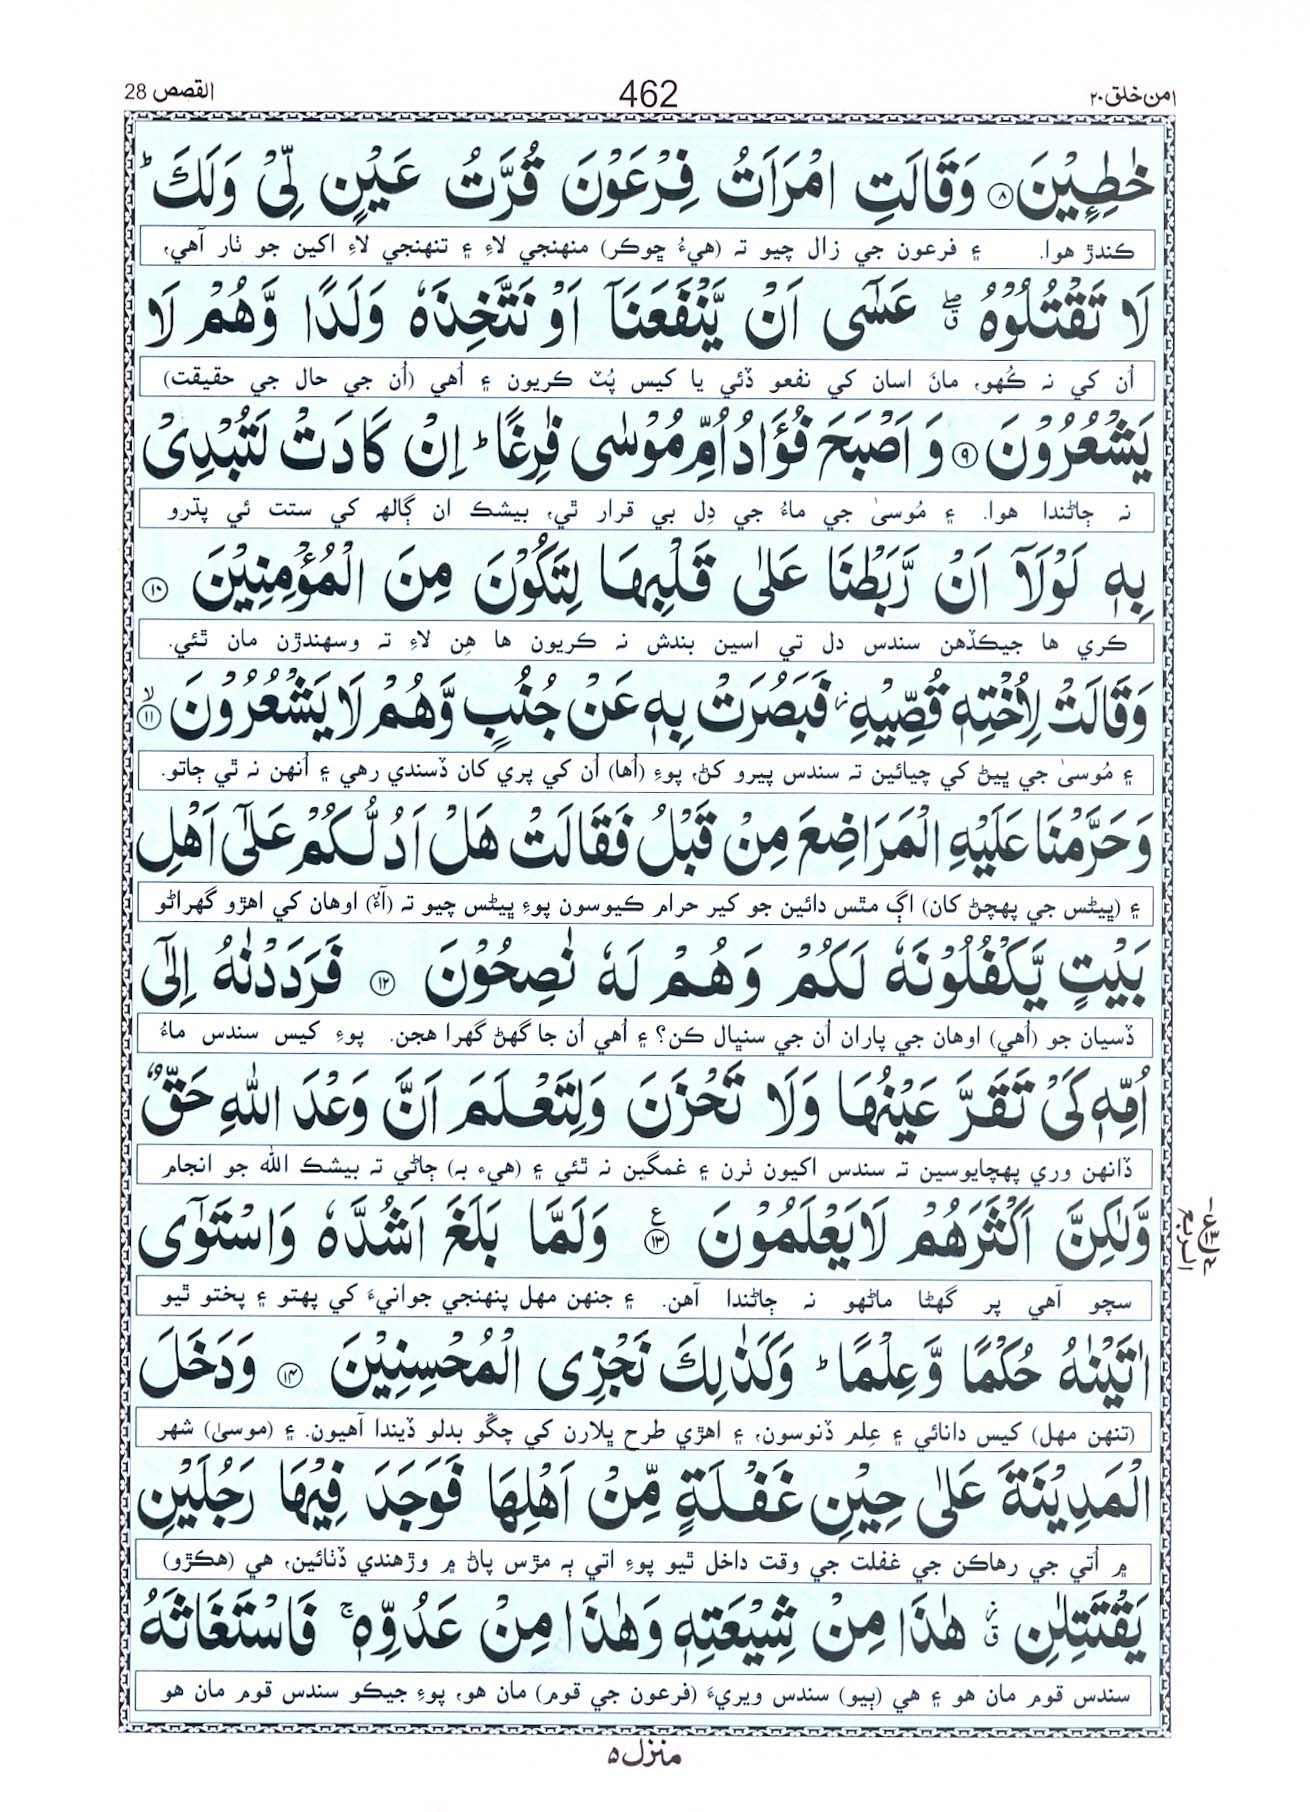 امن خلق ۲۰
462
القصص 28
خٰطِـِٕيْنَ ۸ وَقَالَتِ امْرَاَتُ فِرْعَوْنَ قُرَّتُ عَيْنٍ لِّيْ وَلَكَ ؕ
ڪندڙ هوا. ۽ فرعون جي زال چيو تہ (هيءُ ڇوڪر) منهنجي لاءِ ۽ تنهنجي لاءِ اکين جو ٺار آهي،
لَا تَقْتُلُوْهُ ۖ عَسٰۤى اَنْ يَّنْفَعَنَاۤ اَوْ نَتَّخِذَهٗ وَلَدًا وَّهُمْ لَا
اُن کي نہ ڪُهو، مان اسان کي نفعو ڏئي يا کيس پُٽ ڪريون ۽ اُهي (اُن جي حال جي حقيقت)
يَشْعُرُوْنَ ۹ وَ اَصْبَحَ فُؤَادُ اُمِّ مُوْسٰى فٰرِغًا ؕ اِنْ كَادَتْ لَتُبْدِيْ
نہ ڄاڻندا هوا. ۽ مُوسىٰ جي ماءُ جي دِل بي قرار ٿي، بيشڪ ان ڳالهہ کي ستت ئي پڌرو
بِهٖ لَوْلَاۤ اَنْ رَّبَطْنَا عَلٰى قَلْبِهَا لِتَكُوْنَ مِنَ الْمُؤْمِنِيْنَ ۱۰
ڪري ها جيڪڏهن سندس دل تي اسين بندش نہ ڪريون ها هِن لاءِ تہ وسهندڙن مان ٿئي.
وَقَالَتْ لِاُخْتِهٖ قُصِّيْهِ ؗ فَبَصُرَتْ بِهٖ عَنْ جُنُبٍ وَّهُمْ لَا يَشْعُرُوْنَ ۱۱ ۙ
۽ مُوسىٰ جي ڀيڻ کي چيائين تہ سندس پيرو کڻ، پوءِ (اُها) اُن کي پري کان ڏسندي رهي ۽ اُنهن نہ ٿي ڄاتو.
وَحَرَّمْنَا عَلَيْهِ الْمَرَاضِعَ مِنْ قَبْلُ فَقَالَتْ هَلْ اَدُلُّكُمْ عَلٰۤى اَهْلِ
۽ (ڀيڻس جي پهچڻ کان) اڳ مٿس دائين جو کير حرام ڪيوسون پوءِ ڀيڻس چيو تہ (آءٌ) اوهان کي اهڙو گهراڻو
بَيْتٍ يَّكْفُلُوْنَهٗ لَكُمْ وَهُمْ لَهٗ نٰصِحُوْنَ ۱۲ فَرَدَدْنٰهُ اِلٰۤى
ڏسيان جو (اُهي) اوهان جي پاران اُن جي سنڀال ڪن؟ ۽ اُهي اُن جا گهڻ گهرا هجن. پوءِ کيس سندس ماءُ
اُمِّهٖ كَيْ تَقَرَّ عَيْنُهَا وَلَا تَحْزَنَ وَلِتَعْلَمَ اَنَّ وَعْدَ اللّٰهِ حَقٌّ
ڏانهن وري پهچايوسين تہ سندس اکيون ٺرن ۽ غمگين نہ ٿئي ۽ (هيء بہ) ڄاڻي تہ بيشڪ الله جو انجام
وَّلٰكِنَّ اَكْثَرَهُمْ لَا يَعْلَمُوْنَ ۱۳ ع وَلَمَّا بَلَغَ اَشُدَّهٗ وَاسْتَوٰۤى
سچو آهي پر گهڻا ماڻهو نہ ڄاڻندا آهن. ۽ جنهن مهل پنهنجي جوانيءَ کي پهتو ۽ پختو ٿيو
اٰتَيْنٰهُ حُكْمًا وَّعِلْمًا ؕ وَكَذٰلِكَ نَجْزِى الْمُحْسِنِيْنَ ۱۴ وَدَخَلَ
(تنهن مهل) کيس دانائي ۽ عِلم ڏنوسون، ۽ اهڙي طرح ڀلارن کي چڱو بدلو ڏيندا آهيون. ۽ (موسىٰ) شهر
الْمَدِيْنَةَ عَلٰى حِيْنِ غَفْلَةٍ مِّنْ اَهْلِهَا فَوَجَدَ فِيْهَا رَجُلَيْنِ
۾ اُتي جي رهاڪن جي غفلت جي وقت داخل ٿيو پوءِ اتي ٻہ مڙس پاڻ ۾ وڙهندي ڏٺائين، هي (هڪڙو)
يَقْتَتِلٰنِ ؗ هٰذَا مِنْ شِيْعَتِهٖ وَهٰذَا مِنْ عَدُوِّهٖ ۚ فَاسْتَغَاثَهُ
سندس قوم مان هو ۽ هي (ٻيو) سندس ويريءَ (فرعون جي قوم) مان هو، پوءِ جيڪو سندس قوم مان هو
منزل ۵